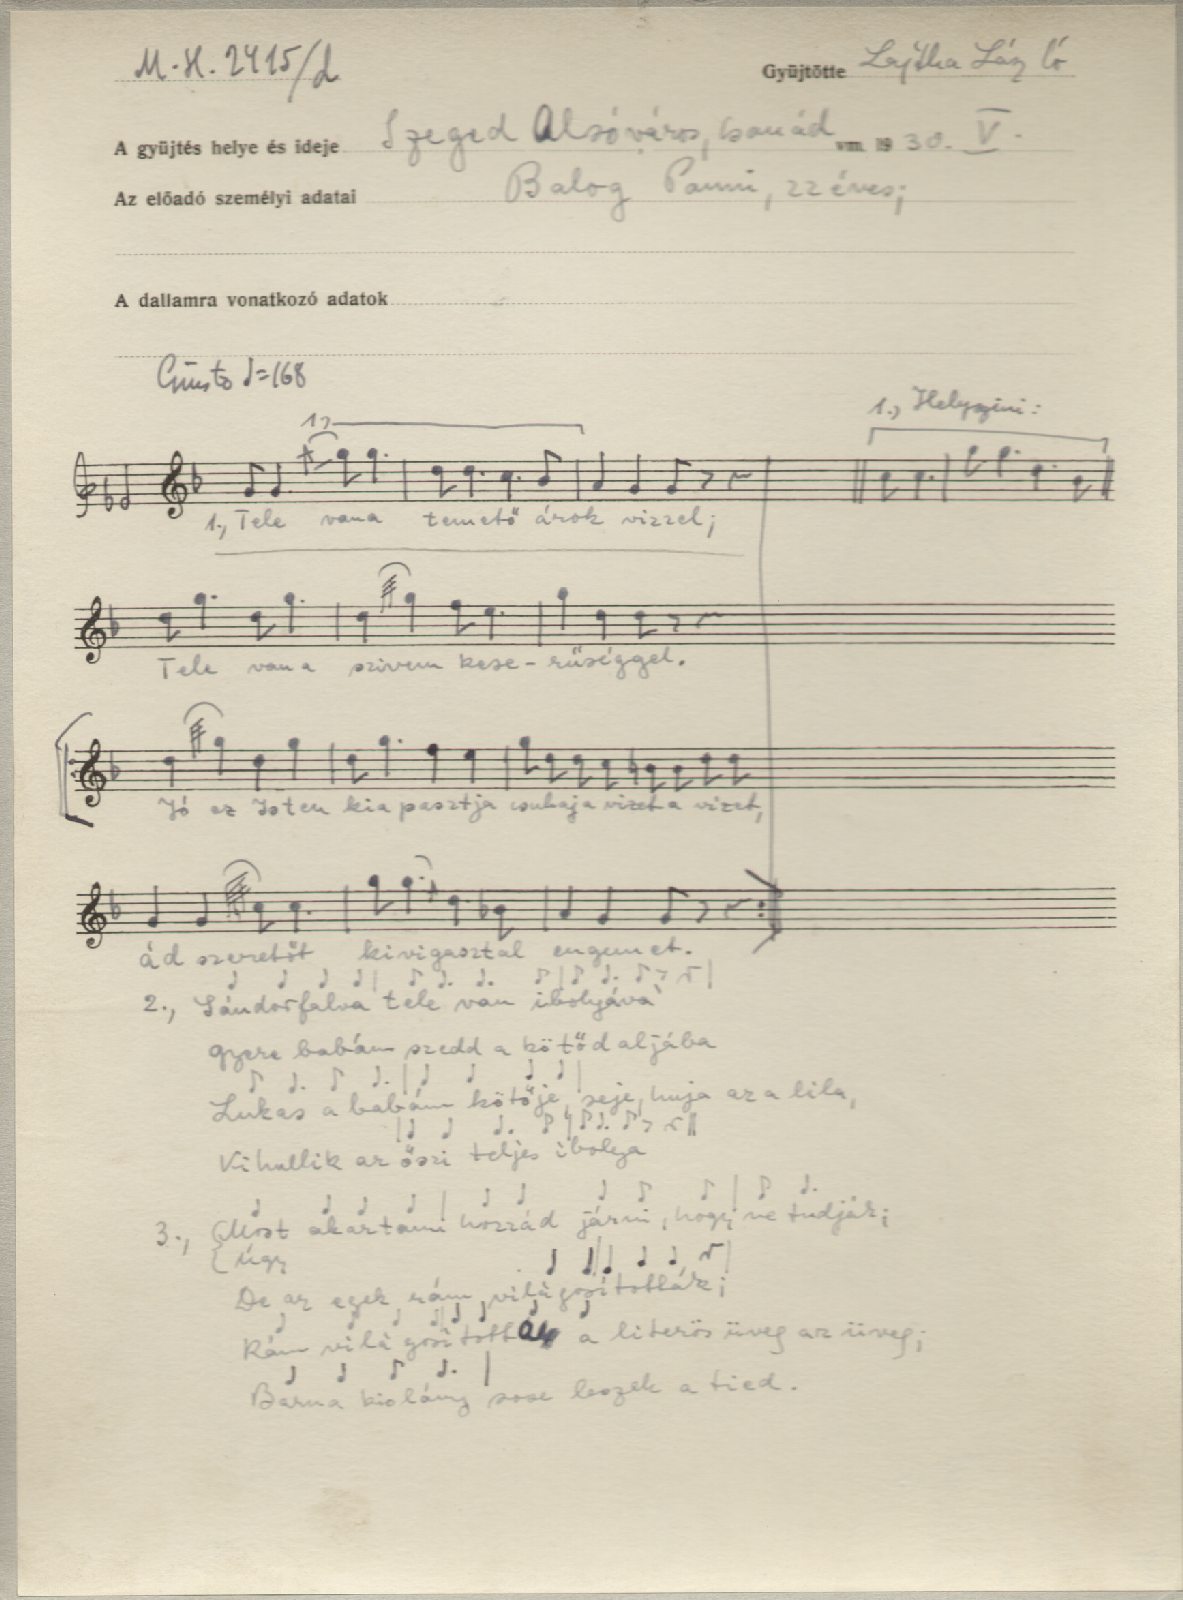 M.H. 2415/d
Gyüjtötte Lajtha László
A gyüjtés helye és ideje Szeged Alsóváros, Csanád vm. 19 30. V.
Az előadó személyi adatai Balog Panni, 22 éves;
A dallamra vonatkozó adatok
Giusto ♩=168
1., Helyszini:
1.,
1., Tele van a temető árok vizzel;
Tele van a szivem kese-rűséggel.
Jó az Isten kia pasztja csuhaja vizet a vizet,
ád szeretőt kivigasztal engemet.
2., Sándorfalva tele van ibolyává'
gyere babám szedd a kötőd aljába
Lukas a babám kötője, seje, huja az a lila,
Kihullik az őszi teljes ibolya
3., Most akartam hozzád járni, hogy ne tudják;
úgy
De az egek rám világositották;
Rám világositották a literös üveg az üveg;
Barna kislány sose leszek a tied.